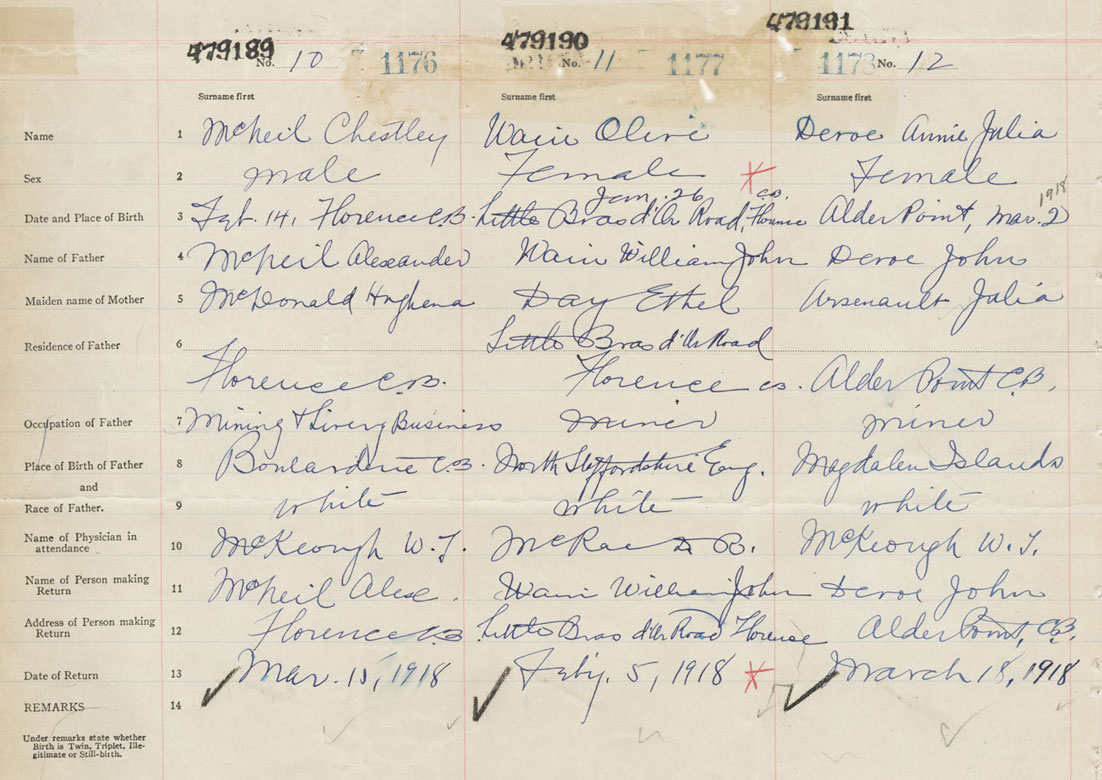 479189 479190 479191
No. 10 1176 No. 11 1177 1178 No. 12
Surname first Surname first Surname first
Name 1 McNeil Chestley Wain Olive Deroe Annie Julia
Sex 2 male Female Female
Jan. 26 C.B. 1918
Date and Place of Birth 3 Feb. 14, Florence C.B. Little Bras d'Or Road, Florence Alder Point, Mar. 2
Name of Father 4 McNeil Alexander Wain William John Deroe John
Maiden name of Mother 5 McDonald Hughena Day Ethel Arsenault Julia
Residence of Father 6 Little Bras d'Or Road
Florence C.B. Florence C.B. Alder Point C.B.
Occupation of Father 7 Mining & Livery Business miner miner
Place of Birth of Father 8 Boulardrie C.B. North Staffordshire Eng. Magdalen Islands
and
Race of Father. 9 white white white
Name of Physician in attendance 10 McKeough W. J. McRae D. R. McKeough W. J.
Name of Person making Return 11 McNeil Alex. Wain William John Deroe John
Address of Person making Return 12 Florence C.B. Little Bras d'Or Road Florence Alder Point, C.B.
Date of Return 13 Mar. 15, 1918 Feby. 5, 1918 March 18, 1918
REMARKS 14
Under remarks state whether
Birth is Twin, Triplet, Ille-
gitimate or Still-birth.